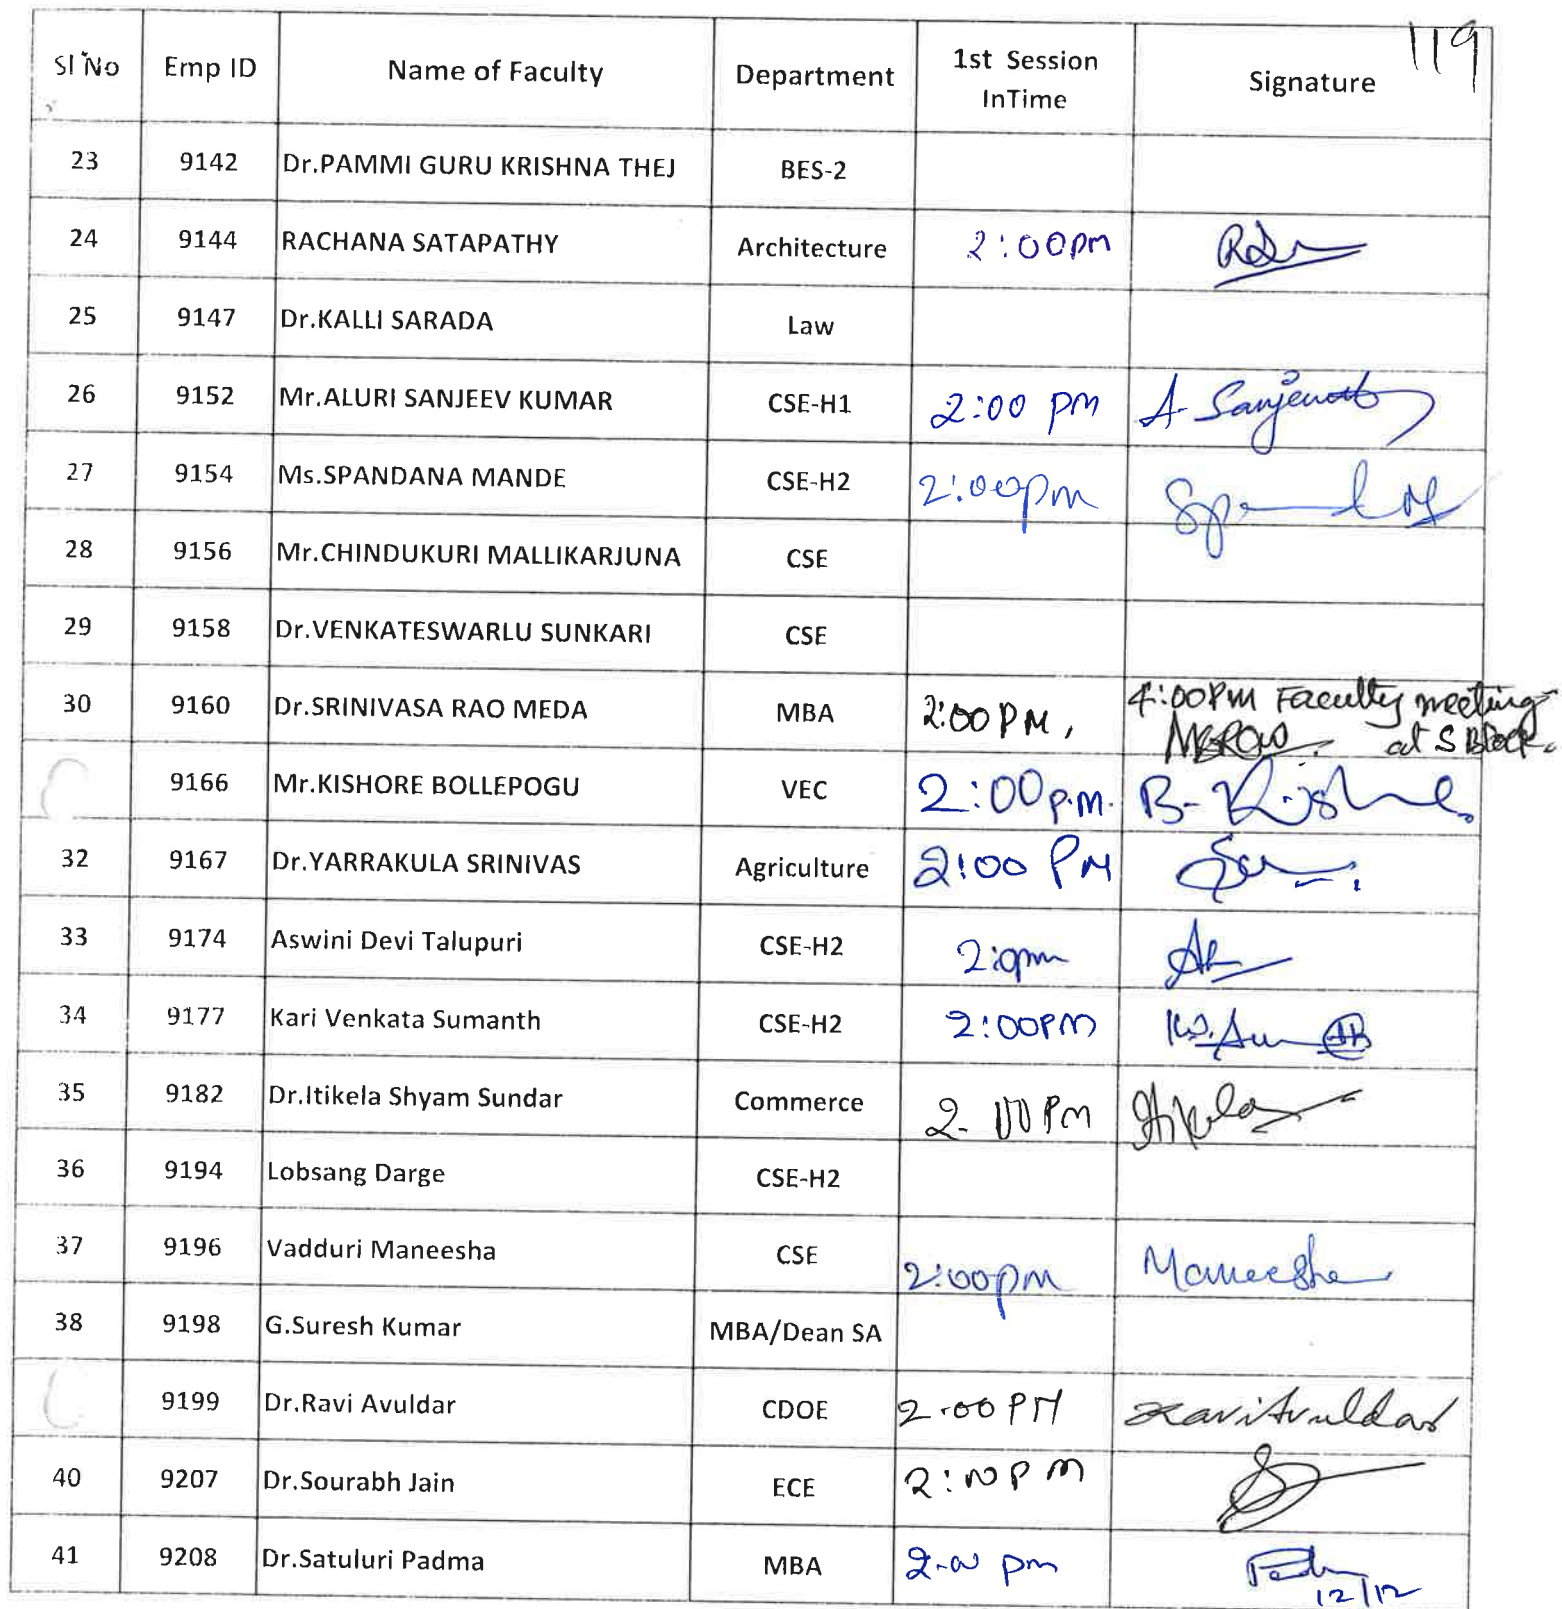 119
Sl No Emp ID Name of Faculty Department 1st Session InTime Signature
23 9142 Dr.PAMMI GURU KRISHNA THEJ BES-2
24 9144 RACHANA SATAPATHY Architecture 2:00pm
25 9147 Dr.KALLI SARADA Law
26 9152 Mr.ALURI SANJEEV KUMAR CSE-H1 2:00 pm A
27 9154 Ms.SPANDANA MANDE CSE-H2 2:00pm
28 9156 Mr.CHINDUKURI MALLIKARJUNA CSE
29 9158 Dr.VENKATESWARLU SUNKARI CSE
30 9160 Dr.SRINIVASA RAO MEDA MBA 2:00 PM, 4:00PM Faculty meeting
at S Block.
9166 Mr.KISHORE BOLLEPOGU VEC 2:00p.m. B-
32 9167 Dr.YARRAKULA SRINIVAS Agriculture 2:00 PM
33 9174 Aswini Devi Talupuri CSE-H2
34 9177 Kari Venkata Sumanth CSE-H2 2:00PM
35 9182 Dr.Itikela Shyam Sundar Commerce 2.00 PM
36 9194 Lobsang Darge CSE-H2
37 9196 Vadduri Maneesha CSE 2:00pm Maneesha
38 9198 G.Suresh Kumar MBA/Dean SA
9199 Dr.Ravi Avuldar CDOE 2.00 PM RaviAvuldar
40 9207 Dr.Sourabh Jain ECE 2:00 PM
41 9208 Dr.Satuluri Padma MBA 2.00 pm
12/12